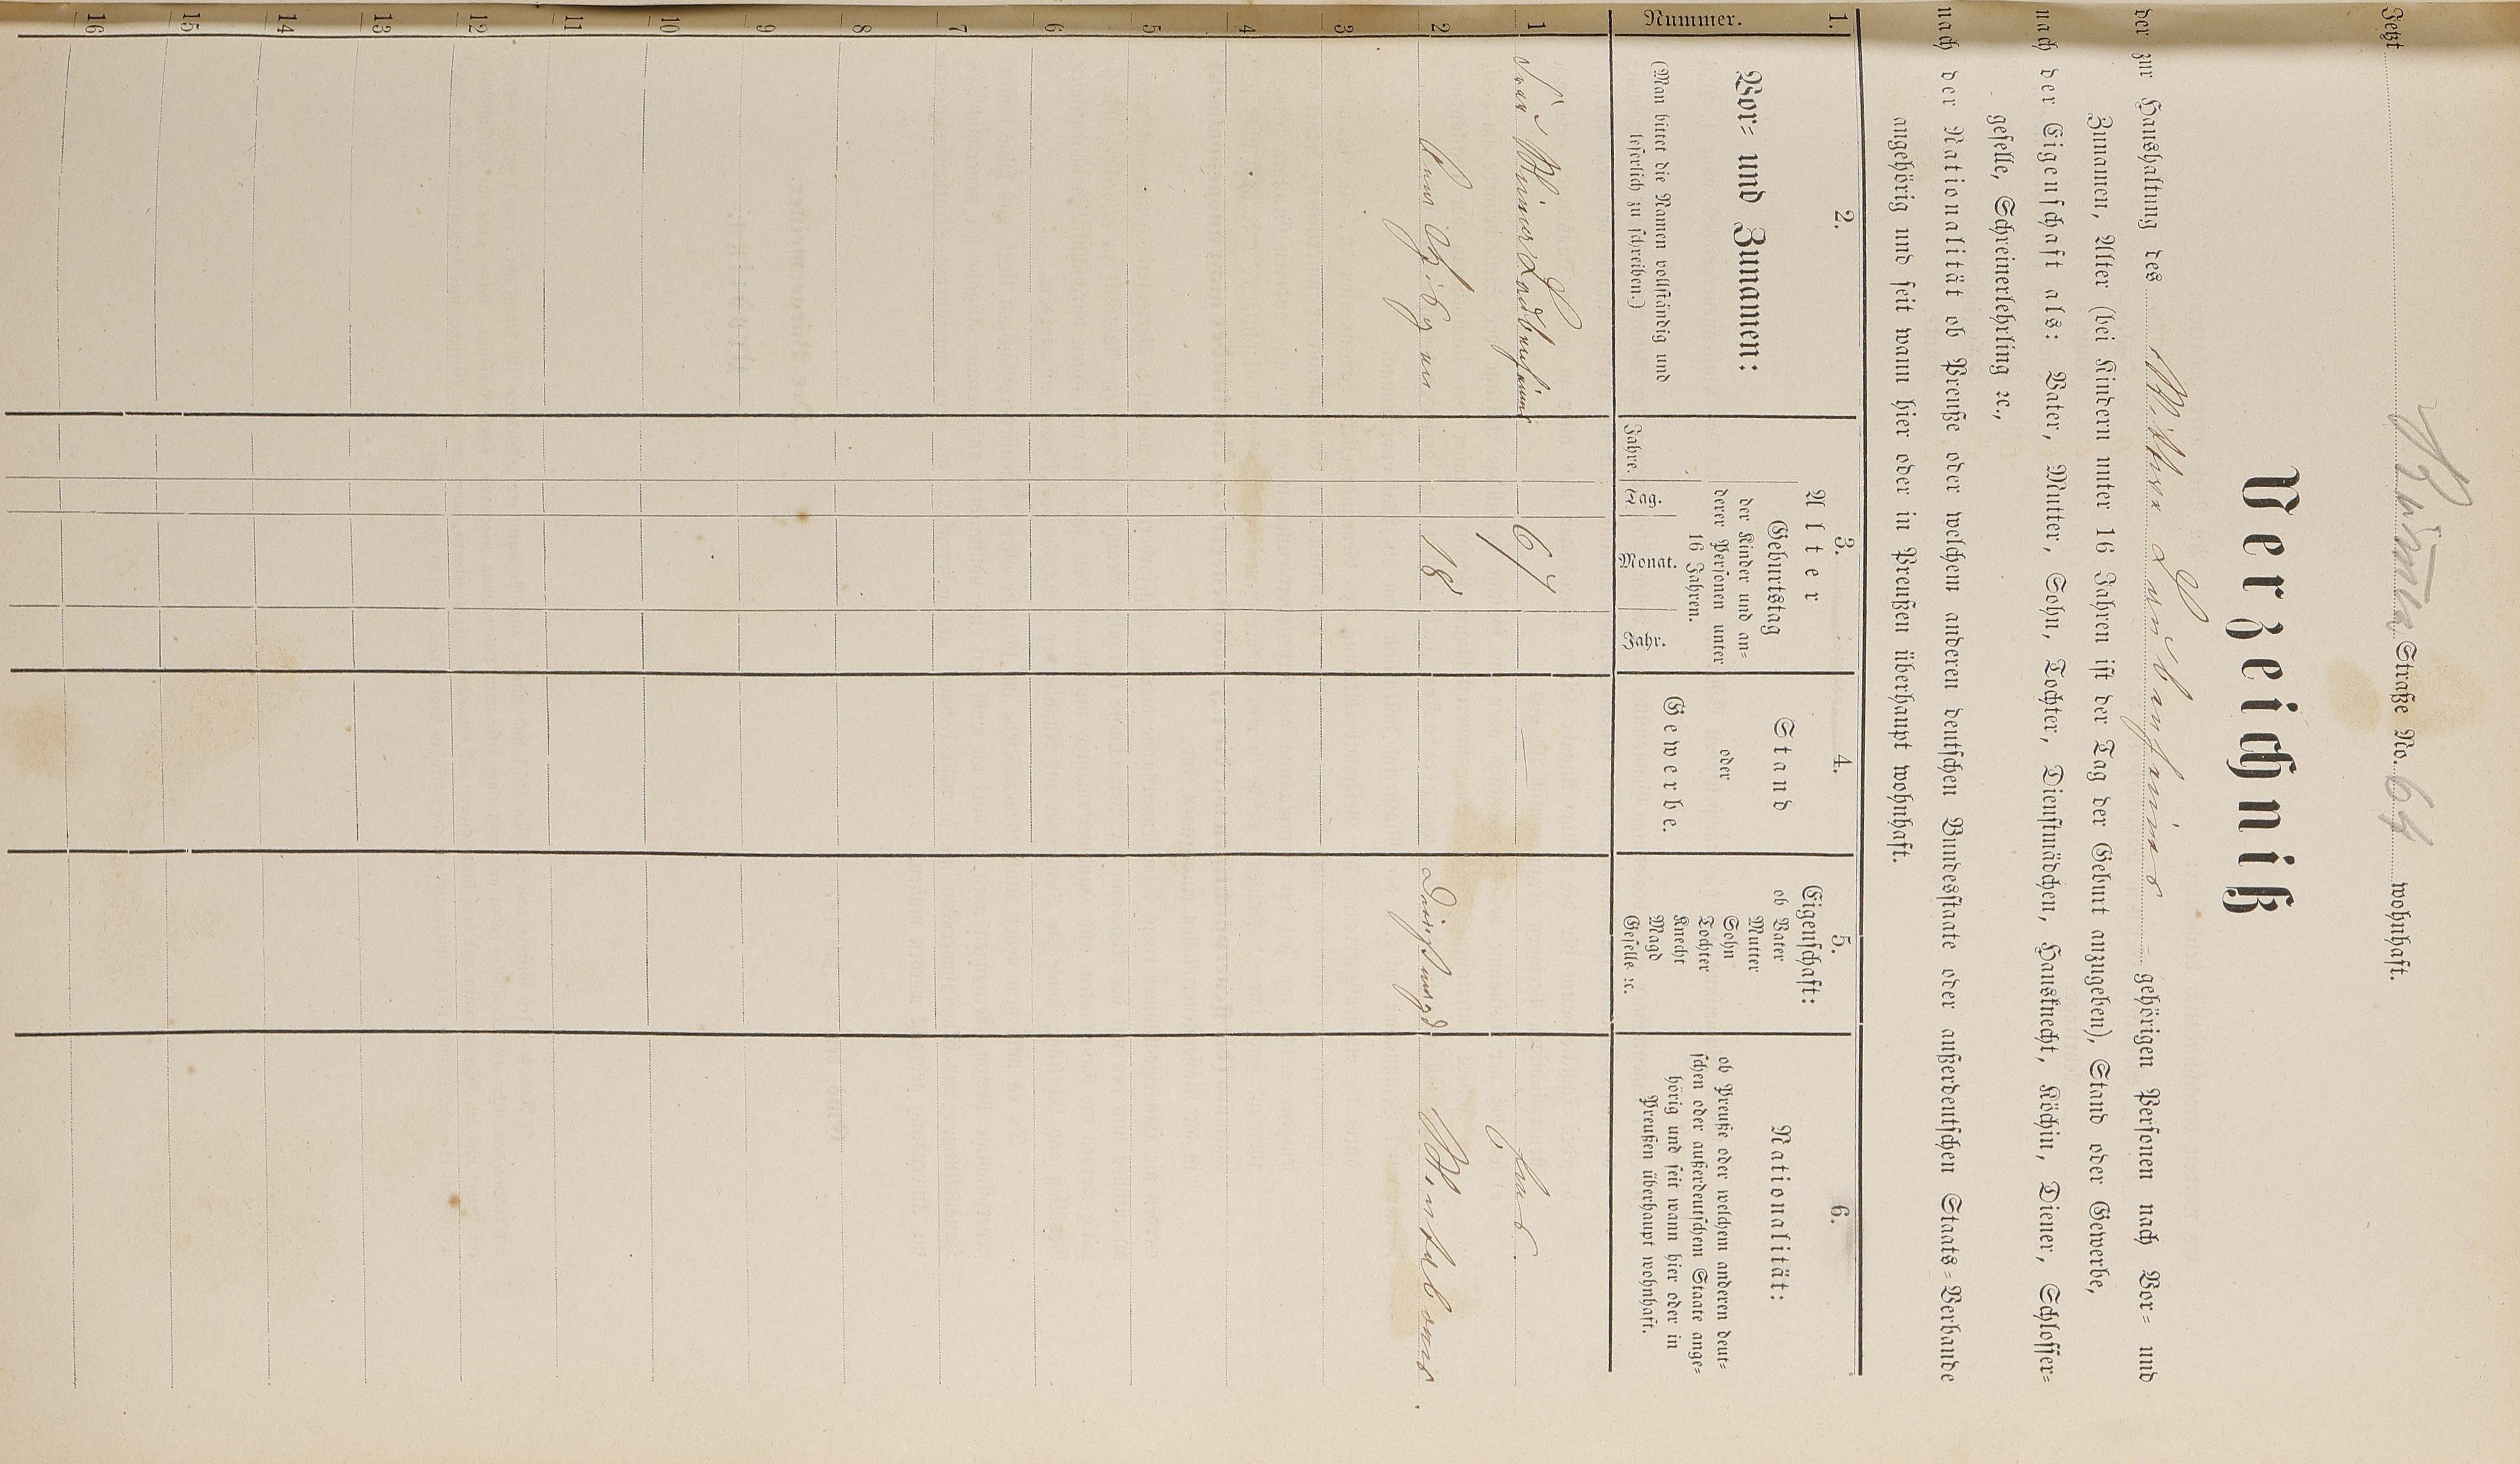 Jetzt Straße No. 64 wohnhaft.
Verzeichniß
der zur Haushaltung des Wittwe gehörigen Personen nach Vor= und
Zunamen, Alter (bei Kindern unter 16 Jahren ist der Tag der Geburt anzugeben), Stand oder Gewerbe,
nach der Eigenschaft als: Vater, Mutter, Sohn, Tochter, Dienstmädchen, Hausknecht, Köchin, Diener, Schlosser=
geselle, Schreinerlehrling ꝛc.,
nach der Nationalität ob Preuße oder welchem anderen deutschen Bundesstaate oder außerdeutschen Staats=Verbande
angehörig und seit wann hier oder in Preußen überhaupt wohnhaft.
1.
Nummer.
2.
Vor= und Zunamen:
(Man bittet die Namen vollständig und
leserlich zu schreiben.)
3.
Alter
Geburtstag
der Kinder und an=
derer Personen unter
16 Jahren.
Jahre.
Tag.
Monat.
Jahr.
4.
Stand
oder
Gewerbe.
5.
Eigenschaft:
ob Vater
Mutter
Sohn
Tochter
Knecht
Magd
Geselle ꝛc.
6.
Nationalität:
ob Preuße oder welchem anderen deut=
schen oder außerdeutschem Staate ange=
hörig und seit wann hier oder in
Preußen überhaupt wohnhaft.
1 67 —
2 18 Dienstmagd
3
4
5
6
7
8
9
10
11
12
13
14
15
16